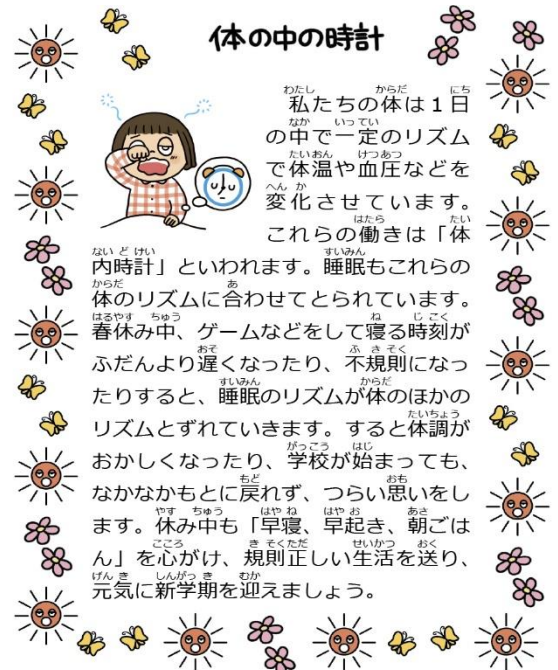 体の中の時計
私たちの体は1日
の中で一定のリズム
で体温や血圧などを
変化させています。
これらの働きは「体
内時計」といわれます。睡眠もこれらの
体のリズムに合わせてとられています。
春休み中、ゲームなどをして寝る時刻が
ふだんより遅くなったり、不規則になっ
たりすると、睡眠のリズムが体のほかの
リズムとずれていきます。すると体調が
おかしくなったり、学校が始まっても、
なかなかもとに戻れず、つらい思いをし
ます。休み中も「早寝、早起き、朝ごは
ん」を心がけ、規則正しい生活を送り、
元気に新学期を迎えましょう。